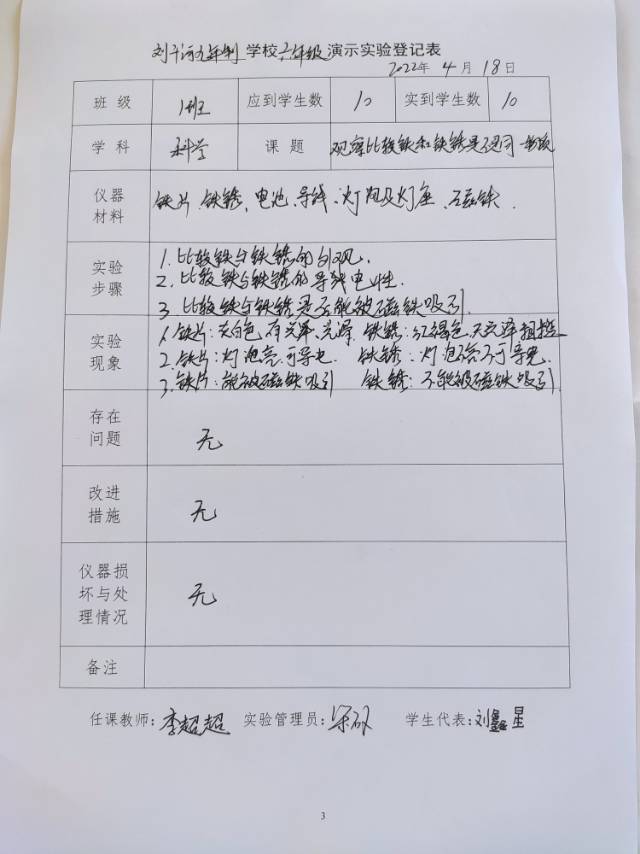 刘千河九年制学校六年级演示实验登记表
2022年4月18日
班级 1班 应到学生数 10 实到学生数 10
学科 科学 课题 观察比较铁和铁锈是不是同一物质
仪器材料 铁片、铁锈、电池、导线、灯泡及灯座、磁铁.
实验步骤 1.比较铁与铁锈的外观.
2.比较铁与铁锈的导电性.
3.比较铁与铁锈是否能被磁铁吸引.
实验现象 1.铁片:灰白色,有光泽、光滑. 铁锈:红褐色,无光泽粗糙
2.铁片:灯泡亮,可导电. 铁锈:灯泡不亮不可导电.
3.铁片:能被磁铁吸引 铁锈:不能被磁铁吸引.
存在问题 无
改进措施 无
仪器损坏与处理情况 无
备注
任课教师:李超超 实验管理员: 学生代表:刘鑫星
3